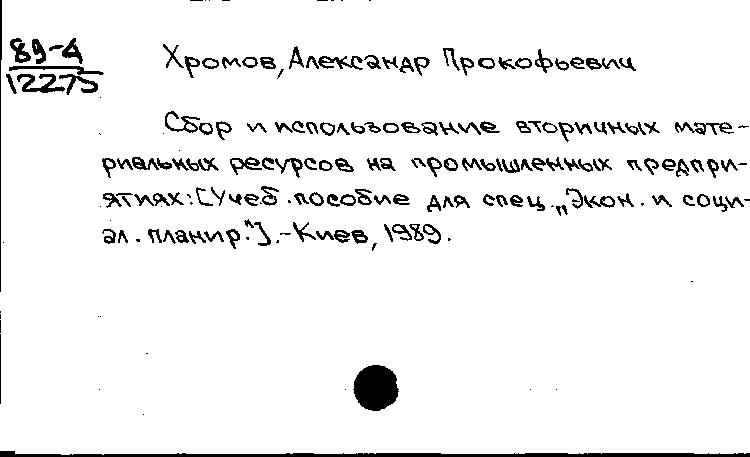 89-4
12275
Хромов, Александр Прокофьевич
Сбор и использование вторичных мате-
риальных ресурсов на промышленных предпри-
ятиях: [Учеб. пособие для спец. „Экон. и соци-
ал. планир."]. - Киев, 1989.